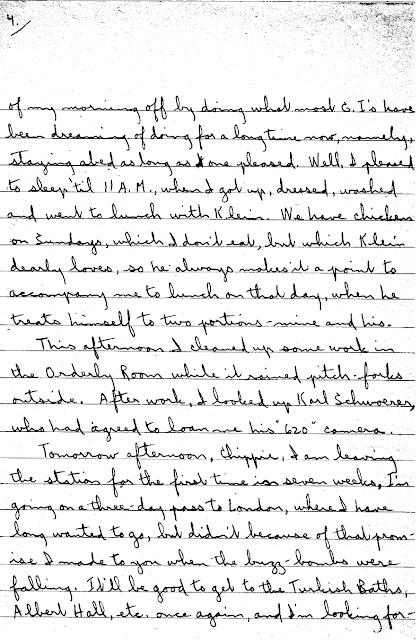 4.
of my morning off by doing what most G.I.'s have
been dreaming of doing for a long time now, namely,
staying abed as long as one pleased. Well, I pleased
to sleep 'til 11 A.M., when I got up, dressed, washed
and went to lunch with Klein. We have chicken
on Sundays, which I don't eat, but which Klein
dearly loves, so he always makes it a point to
accompany me to lunch on that day, when he
treats himself to two portions - mine and his.
This afternoon I cleaned up some work in
the Orderly Room while it rained pitch-forks
outside. After work, I looked up Karl Schwoerer,
who had agreed to loan me his "620" camera.
Tomorrow afternoon, Chippie, I am leaving
the station for the first time in seven weeks, I'm
going on a three-day pass to London, where I have
long wanted to go, but didn't because of that prom-
ise I made to you when the buzz-bombs were
falling. It'll be good to get to the Turkish Baths,
Albert Hall, etc. once again, and I'm looking for-